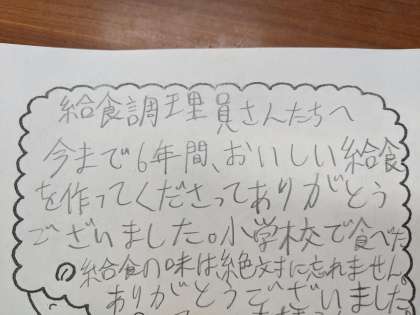 給食調理員さんたちへ
今まで6年間、おいしい給食
を作ってくださってありがとう
ございました。小学校で食べた
給食の味は絶対に忘れません。
ありがとうございました